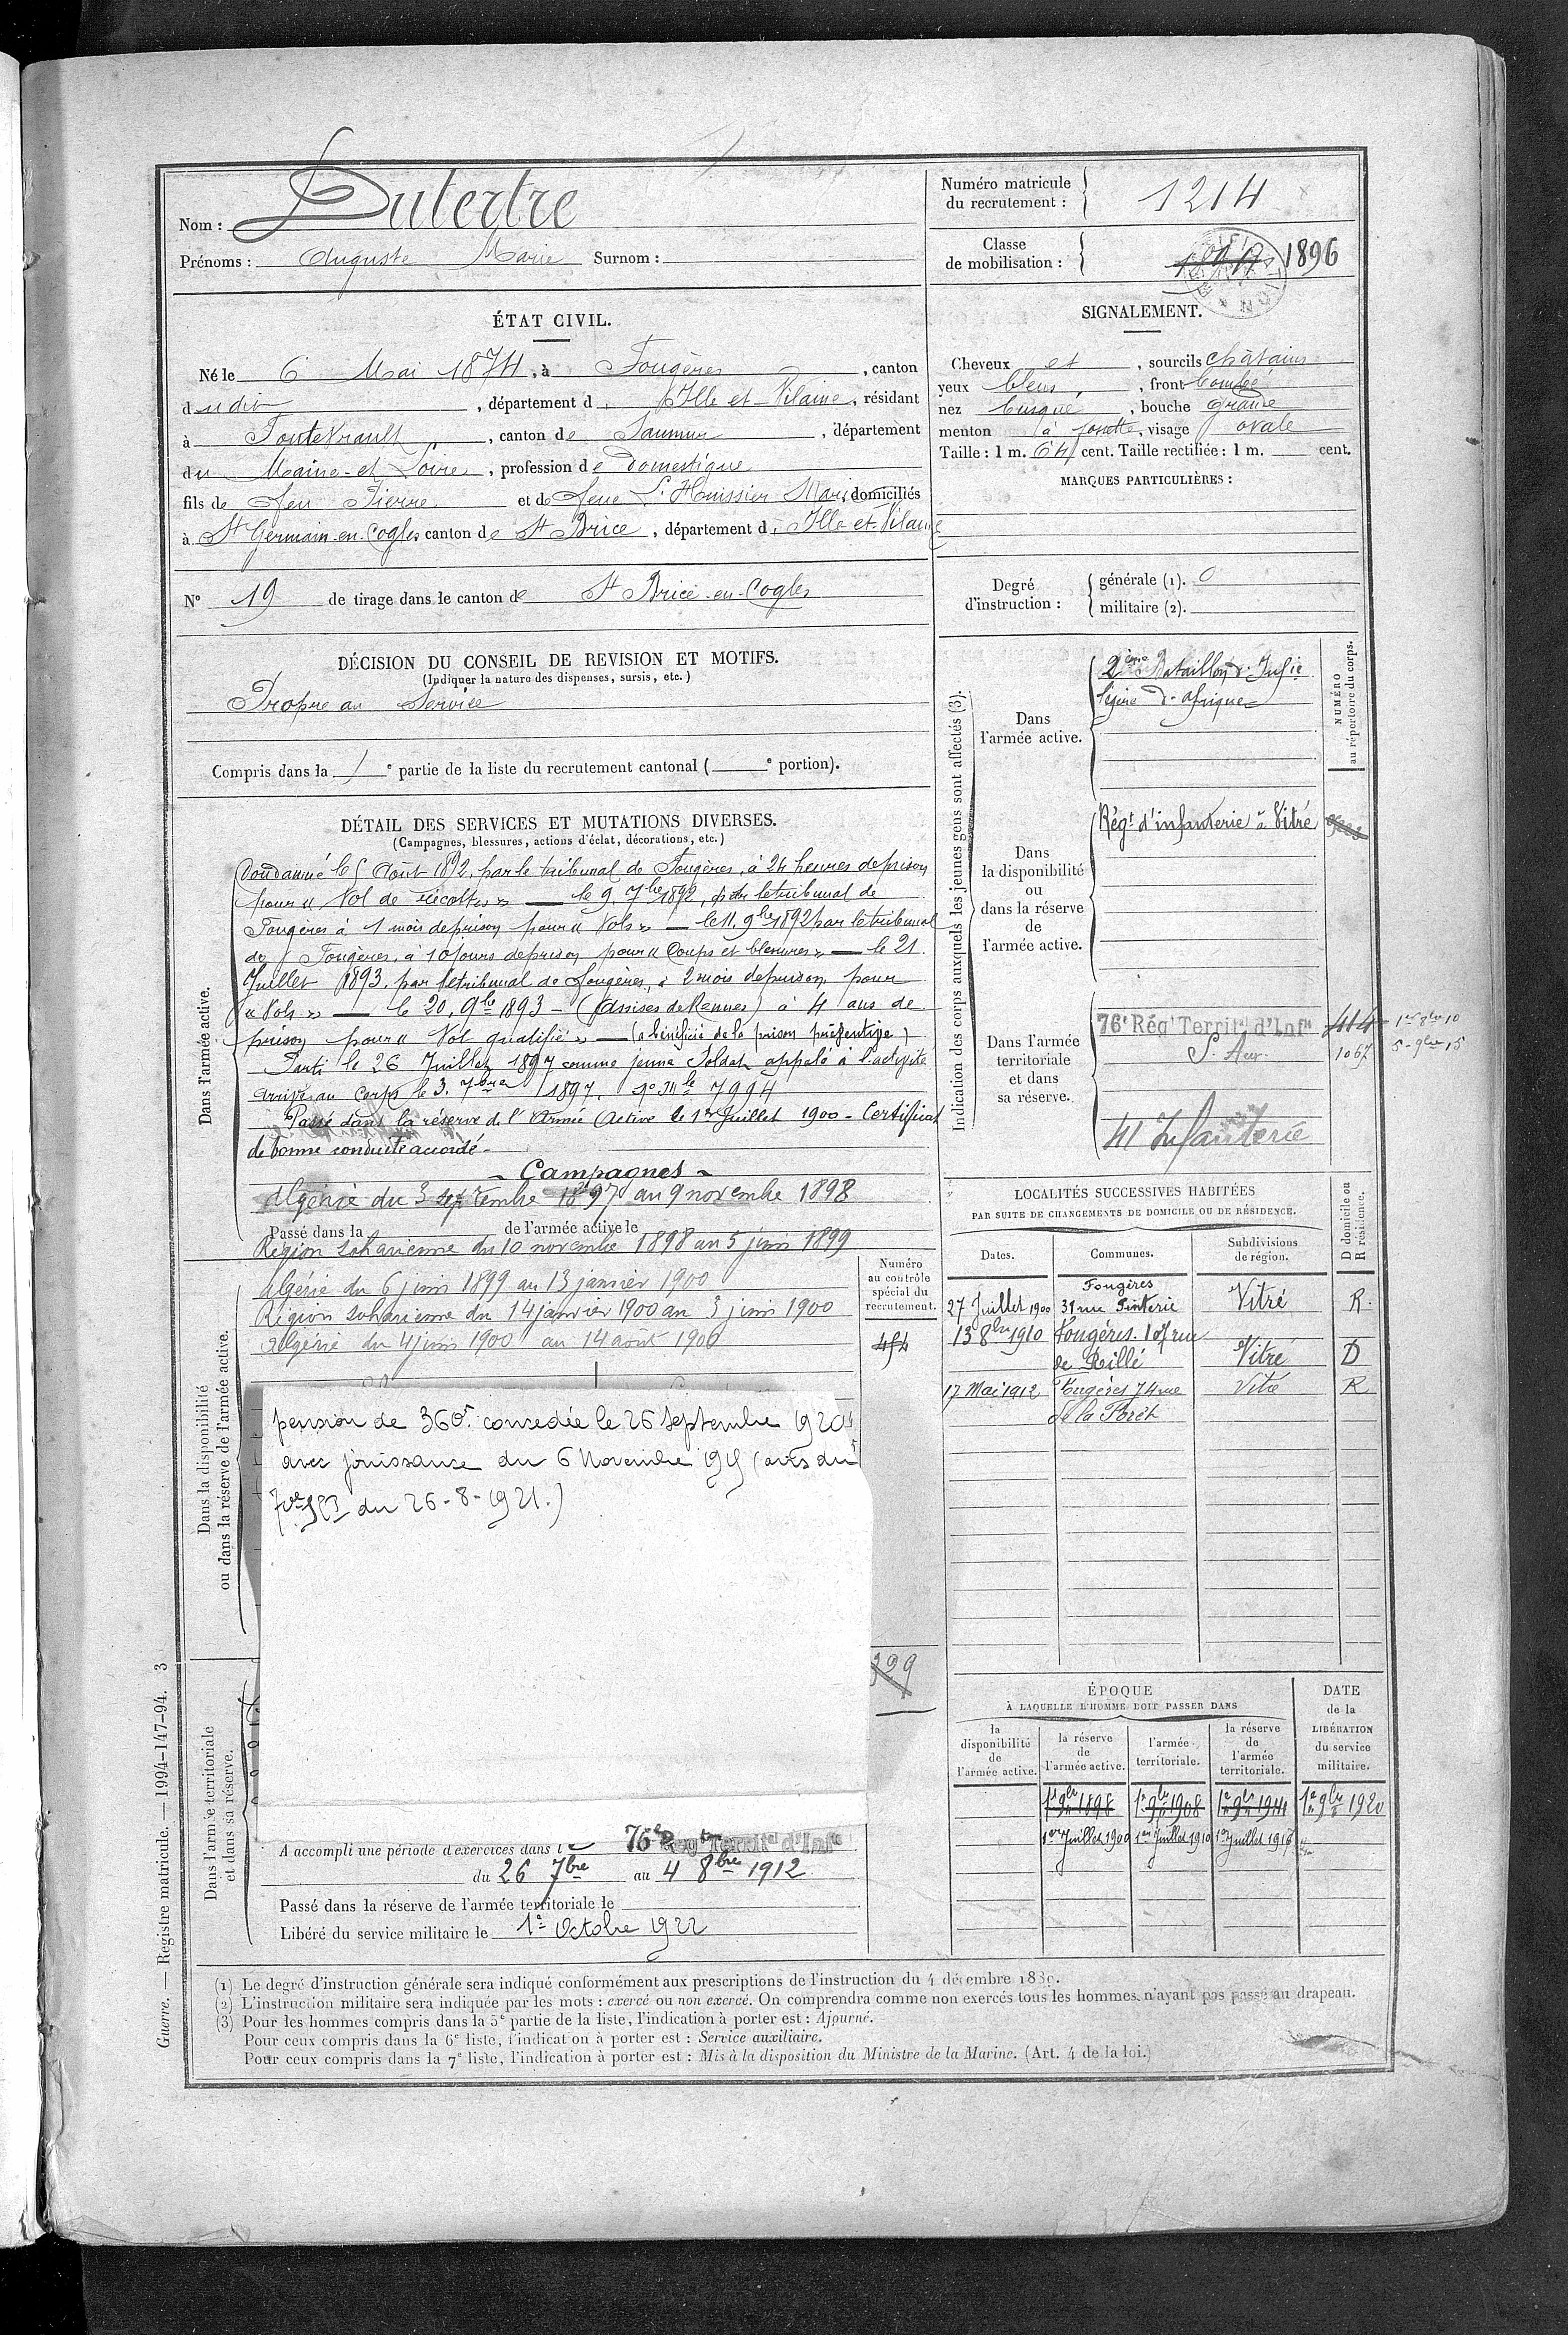 Nom : Dutertre
Prénoms : Auguste Marie Surnom :
Numéro matricule du recrutement : 1214
Classe de mobilisation : 1896
ÉTAT CIVIL.
Né le 6 Mai 1874, à Fougères, canton
du dit, département d'Ille et Vilaine, résidant
à Fontevrault, canton de Saumur, département
du Maine-et-Loire, profession de domestique
fils de feu Pierre et de feue L'Huissier Marie, domiciliés
à St Germain-en-Cogles canton de St Brice, département d'Ille-et-Vilaine
N° 19 de tirage dans le canton de St Brice-en-Cogles
SIGNALEMENT.
Cheveux et, sourcils châtains
yeux bleus, front bombé
nez busqué, bouche grande
menton à fossette, visage ovale
Taille : 1 m. 64 cent. Taille rectifiée : 1 m. cent.
MARQUES PARTICULIÈRES :
Degré d'instruction : générale (1). 0
militaire (2).
DÉCISION DU CONSEIL DE REVISION ET MOTIFS.
(Indiquer la nature des dispenses, sursis, etc.)
Propre au Service
Compris dans la 1e partie de la liste du recrutement cantonal ( e portion).
DÉTAIL DES SERVICES ET MUTATIONS DIVERSES.
(Campagnes, blessures, actions d'éclat, décorations, etc.)
Dans l'armée active.
Condamné le 5 Août 1892, par le tribunal de Fougères, à 24 heures de prison
pour « Vol de récoltes » — le 9 7bre 1892, par le tribunal de
Fougères à 1 mois de prison pour « Vols » — le 11, 9bre 1892 par le tribunal
de Fougères, à 10 jours de prison pour « Coups et blessures » — le 21
Juillet 1893, par le tribunal de Fougères, à 2 mois de prison pour
« Vols » — le 20, 9bre 1893 - (Assises de Rennes) à 4 ans de
prison pour « Vol qualifié » — (a bénéficié de la prison préventive)
Parti le 26 Juillet 1897 comme jeune Soldat appelé à l'activité
arrivé au Corps le 3 7bre 1897. no Mle 7994
Passé dans la réserve de l'Armée Active le 1er Juillet 1900 - Certificat
de bonne conduite accordé -
- Campagnes -
Algérie du 3 septembre 1897 au 9 novembre 1898
Passé dans la de l'armée active le
Région saharienne du 10 novembre 1898 au 5 juin 1899
Dans la disponibilité ou dans la réserve de l'armée active.
Algérie du 6 juin 1899 au 13 janvier 1900
Région saharienne du 14 janvier 1900 au 3 juin 1900
Algérie du 4 juin 1900 au 14 août 1900
Numéro au contrôle spécial du recrutement.
454
pension de 360f concedée le 26 Septembre 1920
avec jouissance du 6 Novembre 1915 (avis du
du 26-8-1921.)
329
Dans l'armée territoriale et dans sa réserve.
A accompli une période d'exercices dans le 76e Régt Territal d'Infie
du 26 7bre au 4 8bre 1912
Passé dans la réserve de l'armée territoriale le
Libéré du service militaire le 1er Octobre 1922
Indication des corps auxquels les jeunes gens sont affectés (3).
NUMÉRO au répertoire du corps.
Dans l'armée active.
2ème Bataillon d'Infie
légère d'Afrique
Dans la disponibilité ou dans la réserve de l'armée active.
Régt d'infanterie à Vitré
Dans l'armée territoriale et dans sa réserve.
76e Régt Territal d'Infie
S. Aux.
41 Infanterie
414 1er 8bre 10
1067 5-9bre 15
LOCALITÉS SUCCESSIVES HABITÉES
PAR SUITE DE CHANGEMENTS DE DOMICILE OU DE RÉSIDENCE.
Dates. Communes. Subdivisions de région. D domicile ou R résidence.
27 Juillet 1900 Fougères 31 rue Pinterie Vitré R.
13 8bre 1910 Fougères. 107 rue de Rillé Vitré D
17 Mai 1912 Fougères 74 rue de la Forêt Vitré R
ÉPOQUE
À LAQUELLE L'HOMME DOIT PASSER DANS
la disponibilité de l'armée active. la réserve de l'armée active. l'armée territoriale. la réserve de l'armée territoriale. DATE de la LIBÉRATION du service militaire.
1er 9bre 1898 1er 9bre 1908 1er 9bre 1914 1er 9bre 1920
1er Juillet 1900 1er Juillet 1910 1er Juillet 1916
(1) Le degré d'instruction générale sera indiqué conformément aux prescriptions de l'instruction du 4 décembre 1889.
(2) L'instruction militaire sera indiquée par les mots : exercé ou non exercé. On comprendra comme non exercés tous les hommes n'ayant pas passé au drapeau.
(3) Pour les hommes compris dans la 5e partie de la liste, l'indication à porter est : Ajourné.
Pour ceux compris dans la 6e liste, l'indication à porter est : Service auxiliaire.
Pour ceux compris dans la 7e liste, l'indication à porter est : Mis à la disposition du Ministre de la Marine. (Art. 4 de la loi.)
Guerre. — Registre matricule. — 1994-147-94. 3